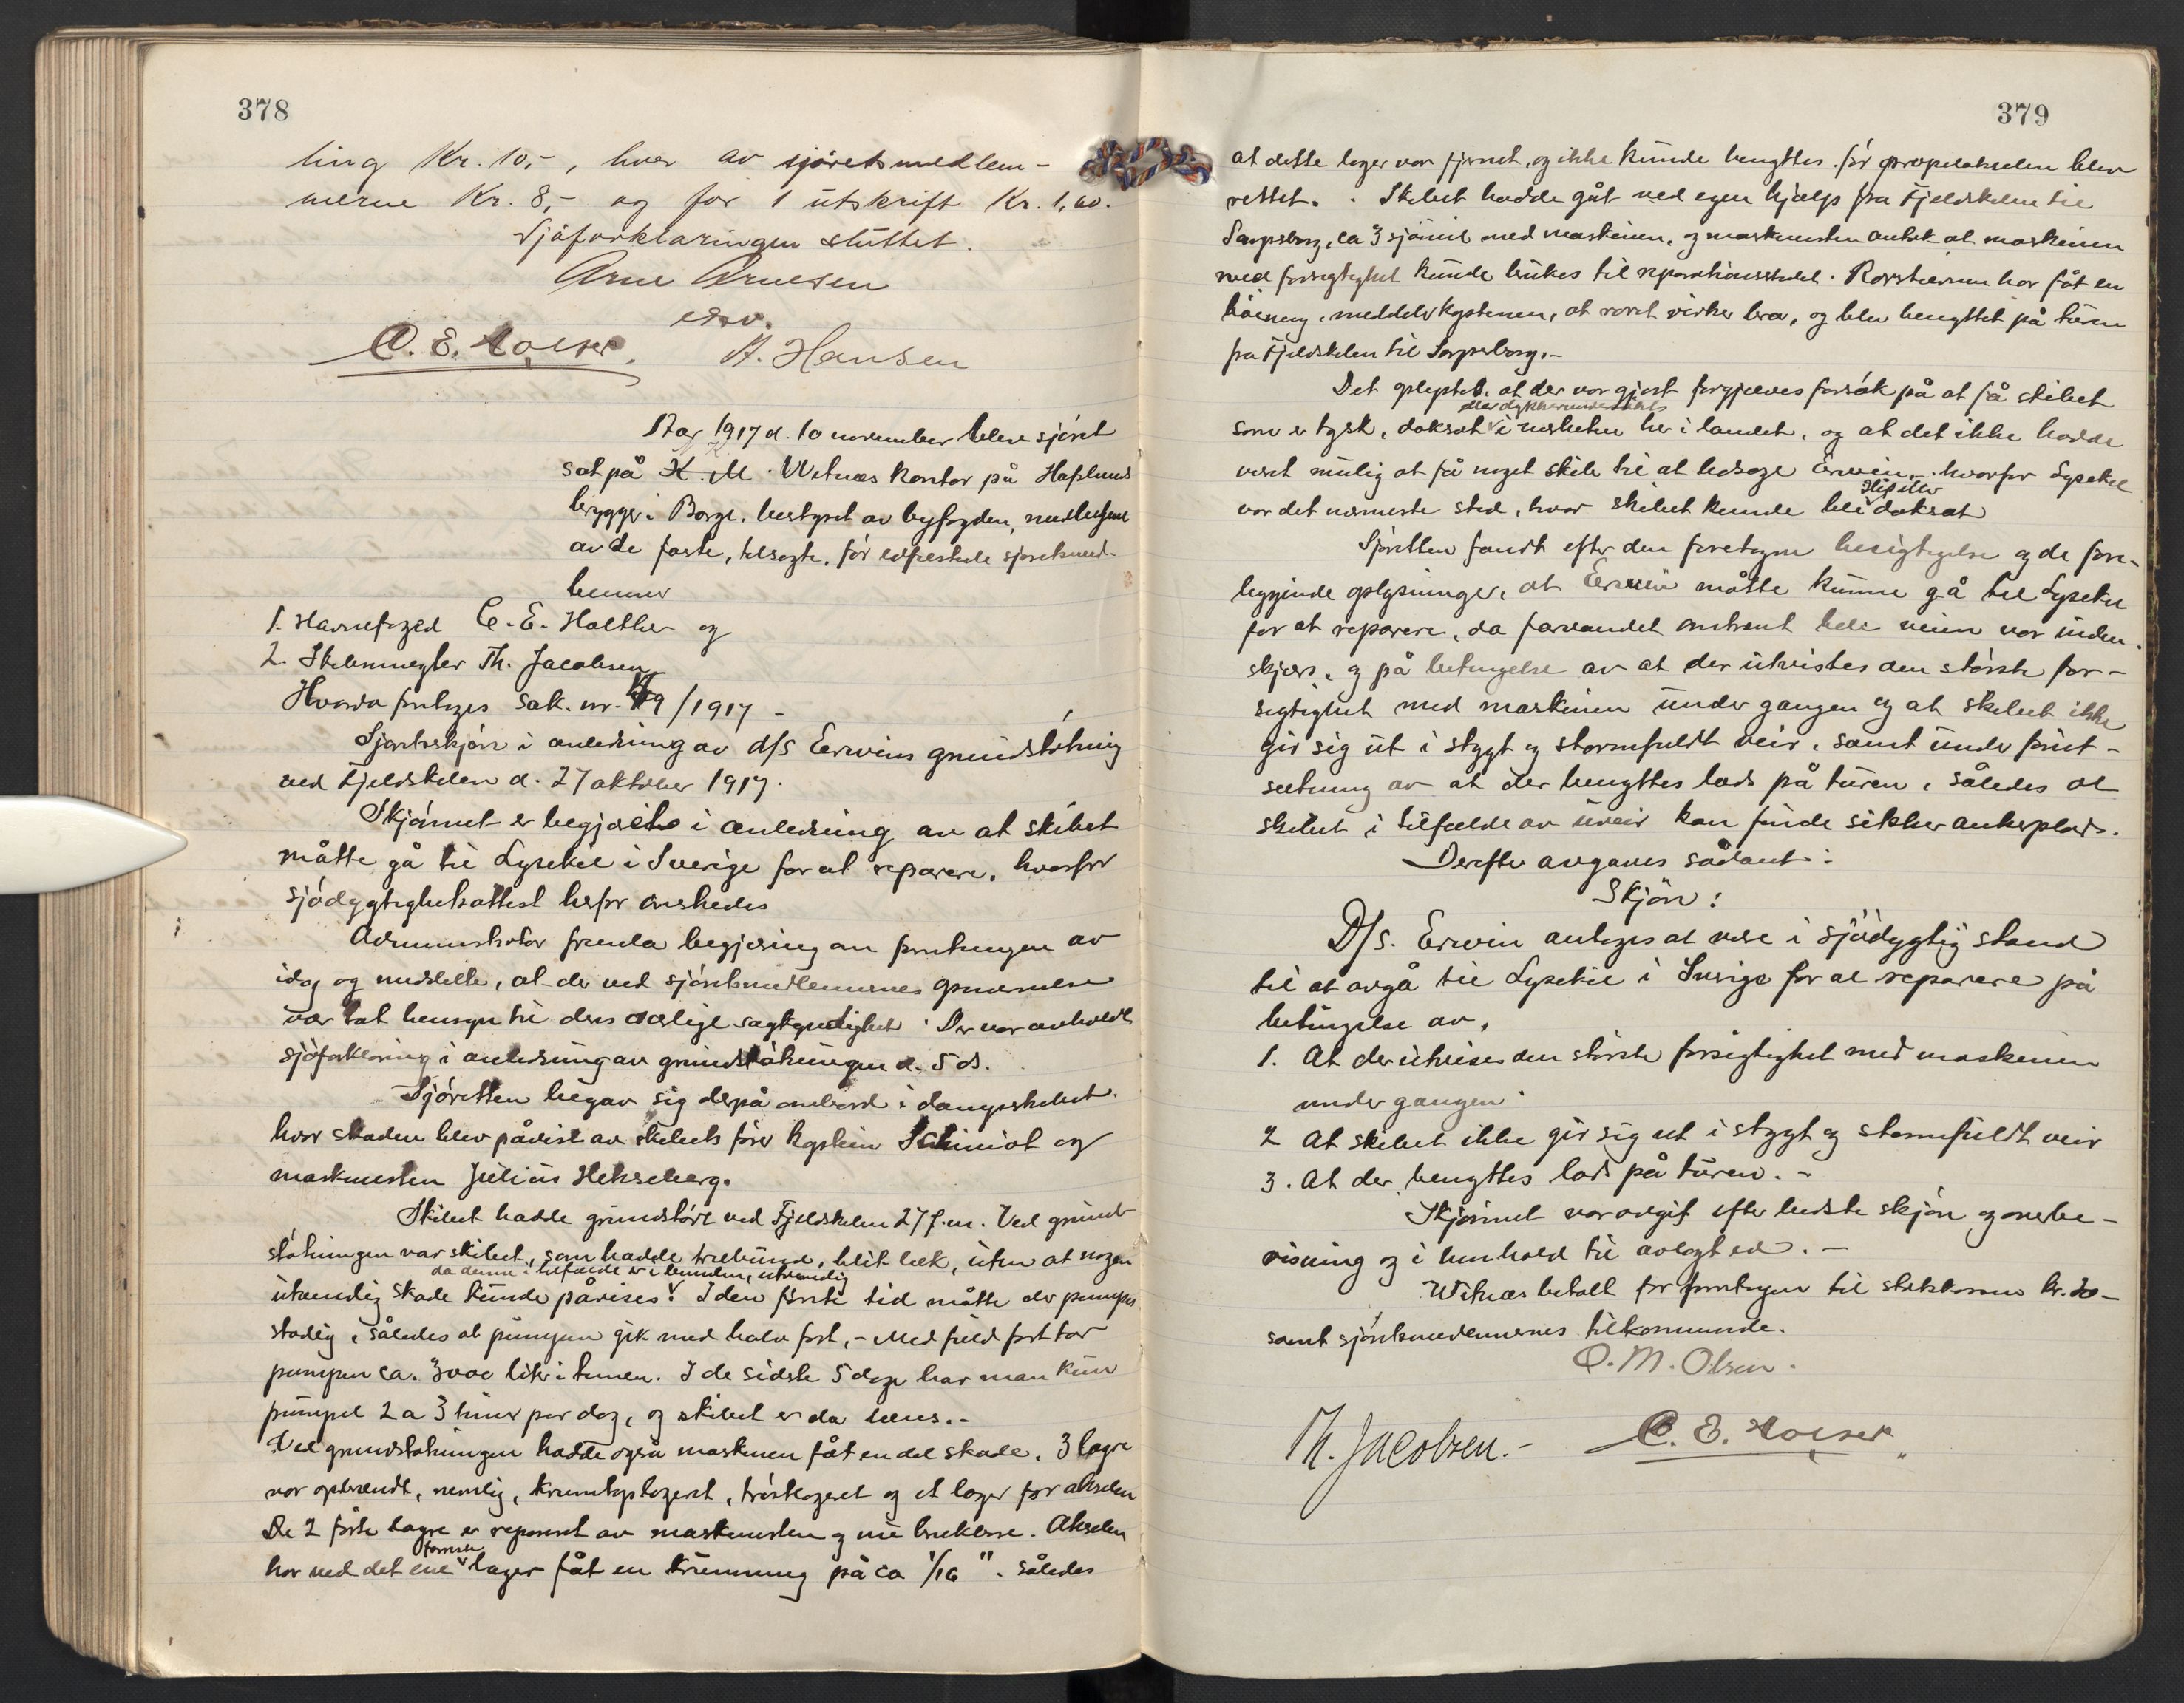 378
ling Kr. 10,-, hver av sjøretsmedlem-
merne Kr. 8,- og for 1 utskrift Kr. 1,60.
Sjøforklaringen sluttet.
Arne Arnesen
edsv.
A. Hansen
Aar 1917 d. 10 november blev sjøret
sat på H. M. Wetnæs kontor på Hafslund
brygge i Borge, bestyret av byfogden, med
av de faste, tilsagte, før edfæstede sjøretsmed-
lemmer
1. Havnefoged C. E. Holther og
2. Skibsmegler Th. Jacobsen
Hvorda foretoges sak. nr. 19/1917 -
Sjøretsskjøn i anledning av d/s Erwins grundstøtning
ved Fjeldskilen d. 27 oktober 1917.
Skjønnet er begjært i anledning av at skibet
måtte gå til Lysekil i Sverige for at reparere, hvorfor
sjødygtighetsattest herfor ønskedes
Administrator fremla begjæring om foretagen av
idag og meddelte, at der ved sjøretsmedlemmernes opnævnelse
var tat hensyn til deres særlige sagkyndighet. Der var avholdt
sjøforklaring i anledning av grundstøtningen d. 5 ds.
Sjøretten begav sig derpå ombord i dampskibet.
hvor skaden blev påvist av skibets fører kaptein Schmidt og
maskinisten Julius Hekseberg.
Skibet hadde grundstødt ved Fjeldskilen 27 f.m. Ved grund-
støtningen var skibet, som hadde træbund, blit læk, uten at nogen
da denne i tilfælde er i bunden, utvendig
utvendig skade kunde påvises. I den første tid måtte der pumpes
stadig, således at pumpen gik med halv fart, - Med fuld fart tar
pumpen ca. 3000 liter i timen. I de sidste 5 dage har man kun
pumpet 2 a 3 timer per dag, og skibet er da læns. -
Ved grundstøtningen hadde også maskinen fåt en del skade. 3 lagre
var opbrændt, nemlig, krumtaplageret, trøstlageret og et lager for akselen
De 2 første lagre er reparert av maskinisten og nu brukbare. Akselen
forreste
har ved det ene lager fåt en krumning på ca 1/16". således
379
at dette lager var fjernet, og ikke kunde benyttes før propelakselen blev
rettet. Skibet hadde gåt ved egen hjælp fra Fjeldskilen til
Sarpsborg, ca 3 sjømil med maskinen, og maskinisten antok at maskinen
med forsigtighet kunde brukes til reparationsstedet. Rorstammen har fåt en
bøining, meddeler kapteinen, at roret virker bra, og blev benyttet på turen
fra Fjeldskilen til Sarpsborg. -
Det oplystes, at der var gjort forgjæves forsøk på at få skibet
eller dykkerundersøkt
som er tysk, doksat i nærheten her i landet, og at det ikke hadde
været mulig at få noget skib til at ledsage Erwin, hvorfor Lysekil
var det nærmeste sted, hvor skibet kunde bli doksat
Sjøretten fandt efter den foretagne besigtigelse og de fore-
liggende oplysninger, at Erwin måtte kunne gå til Lysekil
for at reparere, da farvandet omtrent hele veien var inden-
skjærs, og på betingelse av at der utvistes den største for-
sigtighet med maskinen under gangen og at skibet ikke
gir sig ut i stygt og stormfuldt veir, samt under forut-
sætning av at der benyttes lods på turen, således at
skibet i tilfælde av uveir kan finde sikker ankerplads.
Derefter avgaves sådant:
Skjøn:
D/s. Erwin antages at være i sjødygtig stand
til at avgå til Lysekil i Sverige for at reparere på
betingelse av,
1. At der utvises den største forsigtighet med maskinen
under gangen
2 At skibet ikke gir sig ut i stygt og stormfuldt veir
3. At der benyttes lods på turen. -
Skjønnet var avgit efter bedste skjøn og overbe-
visning og i henhold til avlagt ed. -
Wetnæs betalt for foretagen til statskassen kr. 20 -
samt sjøretsmedlemmernes tilkommende.
O. M. Olsen.
Th. Jacobsen. -